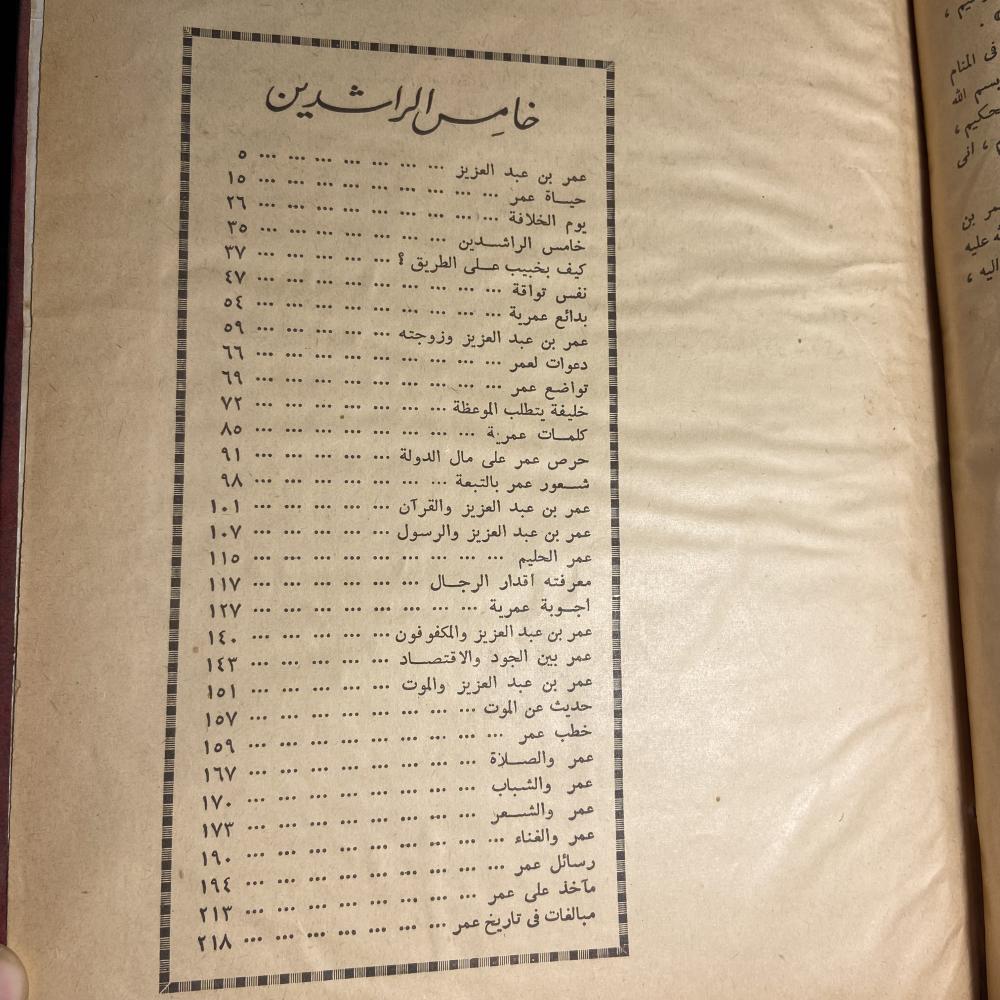 خامس الراشدين
عمر بن عبد العزيز ... ... ... ... ... ... ... ٥
حيــاة عمر ... ... ... ... ... ... ... ... ... ١٥
يوم الخلافة ... ... ... ... ... ... ... ... ... ٢٦
خامس الراشــدين ... ... ... ... ... ... ... ٣٥
كيف بخبيب عــلى الطريق ؟ ... ... ... ... ... ٣٧
نفس تواقة ... ... ... ... ... ... ... ... ... ٤٧
بدائع عمرية ... ... ... ... ... ... ... ... ... ٥٤
عمر بن عبد العزيز وزوجته ... ... ... ... ... ٥٩
دعوات لعمر ... ... ... ... ... ... ... ... ... ٦٦
تواضع عمر ... ... ... ... ... ... ... ... ... ٦٩
خليفة يتطلب الموعظة ... ... ... ... ... ... ... ٧٢
كلمــات عمرية ... ... ... ... ... ... ... ... ٨٥
حرص عمر على مال الدولة ... ... ... ... ... ٩١
شــعور عمر بالتبعة ... ... ... ... ... ... ... ٩٨
عمر بن عبد العزيز والقرآن ... ... ... ... ... ١٠١
عمر بن عبد العزيز والرسول ... ... ... ... ... ١٠٧
عمر الحليم ... ... ... ... ... ... ... ... ... ١١٥
معرفته اقدار الرجــال ... ... ... ... ... ... ١١٧
اجــوبة عمرية ... ... ... ... ... ... ... ... ١٢٧
عمر بن عبد العزيز والمكفوفون ... ... ... ... ... ١٤٠
عمر بين الجود والاقتصــاد ... ... ... ... ... ١٤٣
عمر بن عبد العزيز والموت ... ... ... ... ... ١٥١
حديث عن الموت ... ... ... ... ... ... ... ... ١٥٧
خطب عمر ... ... ... ... ... ... ... ... ... ١٥٩
عمر والصــلاة ... ... ... ... ... ... ... ... ١٦٧
عمر والشباب ... ... ... ... ... ... ... ... ١٧٠
عمر والشــعر ... ... ... ... ... ... ... ... ١٧٣
عمر والغناء ... ... ... ... ... ... ... ... ... ١٩٠
رسائل عمر ... ... ... ... ... ... ... ... ... ١٩٤
مآخذ على عمر ... ... ... ... ... ... ... ... ٢١٣
مبالغات فى تاريخ عمر ... ... ... ... ... ... ... ٢١٨
فى المنام
بسم الله
انى
بن
عليه
اليه ،